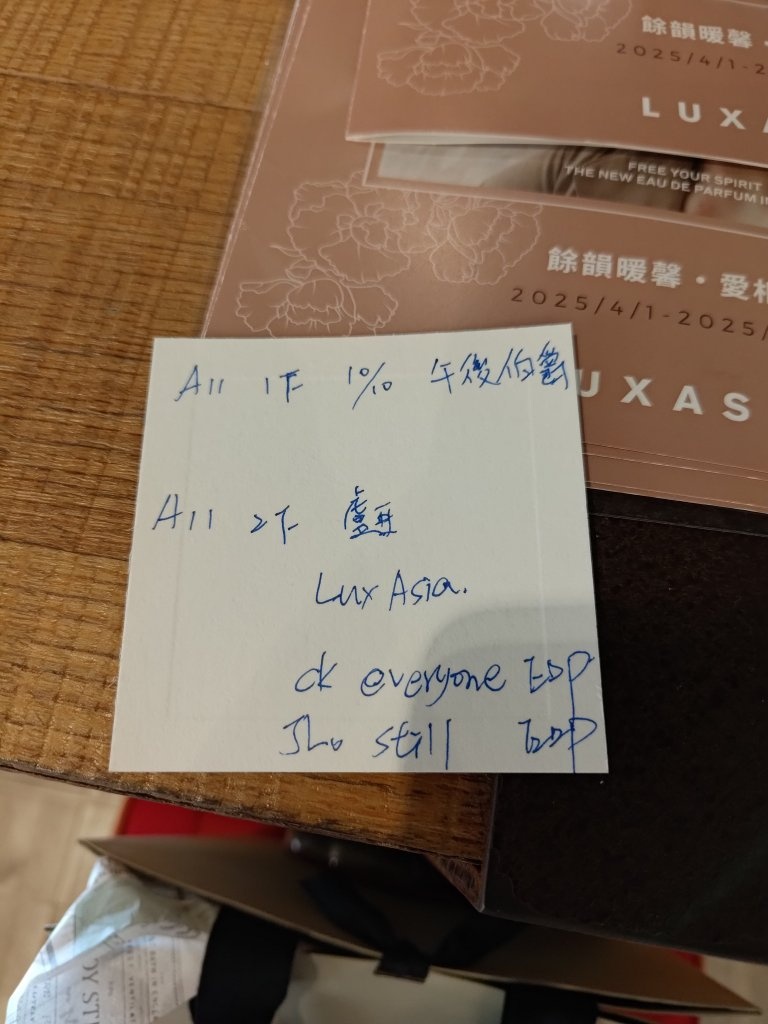 餘韻暖馨・
2025/4/1-2
LUXA
FREE YOUR SPIRIT
THE NEW EAU DE PARFUM IN
餘韻暖馨・愛相
2025/4/1-2025/
UXAS
All 1F 10% 午後伯爵
All 2F
Lux Asia.
ck everyone EDP
JLo still EDP